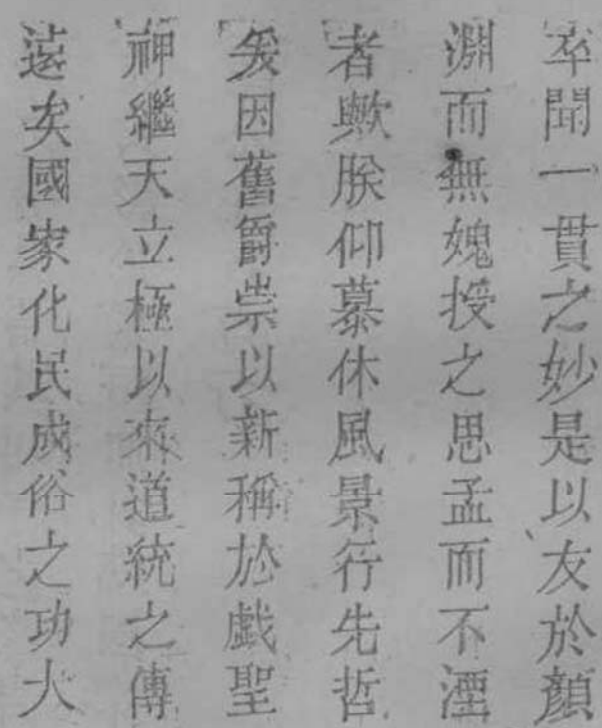 卒聞一貫之妙是以友於顏
淵而無媿授之思孟而不湮
者歟朕仰慕休風景行先哲
爰因舊爵崇以新稱於戲聖
神繼天立極以來道統之傳
遠矣國家化民成俗之功大